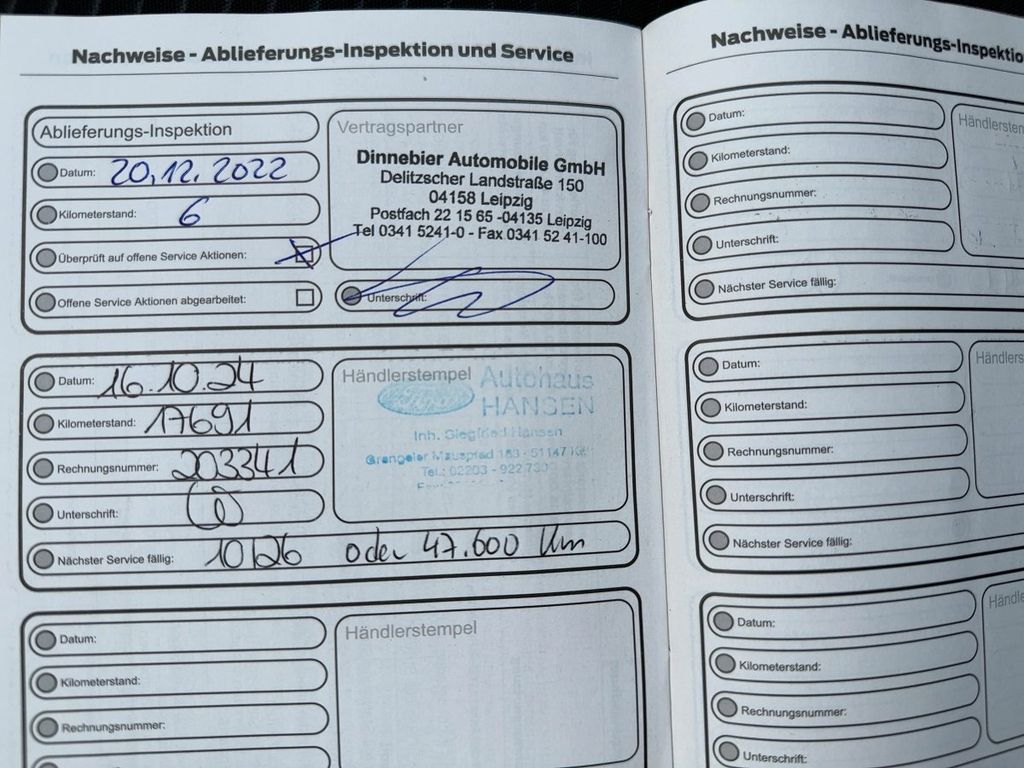 Nachweise - Ablieferungs-Inspektion und Service
Ablieferungs-Inspektion
Datum: 20.12.2022
Kilometerstand: 6
Überprüft auf offene Service Aktionen:
Offene Service Aktionen abgearbeitet:
Vertragspartner
Dinnebier Automobile GmbH
Delitzscher Landstraße 150
04158 Leipzig
Postfach 22 15 65 -04135 Leipzig
Tel 0341 5241-0 - Fax 0341 52 41-100
Unterschrift:
Datum: 16.10.24
Kilometerstand: 17691
Rechnungsnummer: 203341
Unterschrift:
Nächster Service fällig: 10/26 oder 47.600 Km
Händlerstempel
Autohaus
HANSEN
Inh. Siegfried Hansen
Grengeler Mauspfad 163 - 51147
Tel.: 02203 - 922 730
Datum:
Kilometerstand:
Rechnungsnummer:
Händlerstempel
Nachweise - Ablieferungs-Inspektio
Datum:
Kilometerstand:
Rechnungsnummer:
Unterschrift:
Nächster Service fällig:
Händlerstem
Datum:
Kilometerstand:
Rechnungsnummer:
Unterschrift:
Nächster Service fällig:
Händlers
Datum:
Kilometerstand:
Rechnungsnummer:
Unterschrift:
Händle